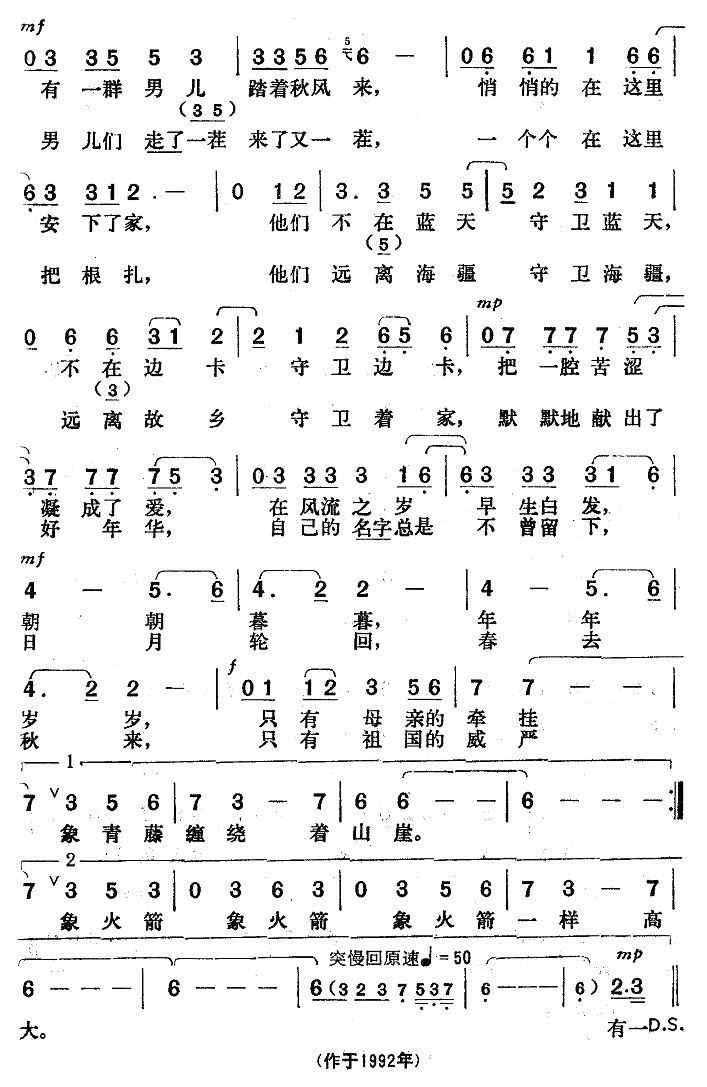 mf
0 3 3 5 5 3 | 3 3 5 6 5 6 — | 0 6 6 1 1 6 6 |
有 一群 男 儿 踏着秋风 来, 悄 悄的 在 这里
(3 5)
男 儿们 走了一茬 来了又一 茬, 一 个个 在 这里
6 3 3 1 2 . — | 0 1 2 | 3 . 3 5 5 | 5 2 3 1 1 |
安 下了家, 他们 不 在 蓝 天 守 卫 蓝 天,
(5)
把 根扎, 他们 远 离 海 疆 守 卫 海 疆,
mp
0 6 6 3 1 2 | 2 1 2 6 5 6 | 0 7 7 7 7 5 3 |
不 在 边 卡 守 卫 边 卡, 把 一腔 苦 涩
(3)
远 离 故 乡 守 卫 着 家, 默 默地 献 出了
3 7 7 7 7 5 3 | 0 3 3 3 3 1 6 | 6 3 3 3 3 1 6 |
凝 成了 爱, 在 风流 之 岁 早 生白 发,
好 年 华, 自 己的 名字总是 不 曾留 下,
mf
4 — 5 . 6 | 4 . 2 2 — | 4 — 5 . 6 |
朝 朝 暮 暮, 年 年
日 月 轮 回, 春 去
f
4 . 2 2 — | 0 1 1 2 3 5 6 | 7 7 — — |
岁 岁, 只 有 母 亲的 牵 挂
秋 来, 只 有 祖 国的 威 严
1
7 ∨ 3 5 6 | 7 3 — 7 | 6 6 — — | 6 — — — :‖
象 青 藤 缠 绕 着 山 崖。
2
7 ∨ 3 5 3 | 0 3 6 3 | 0 3 5 6 | 7 3 — 7 |
象 火 箭 象 火 箭 象 火 箭 一 样 高
突慢回原速♩=50 mp
6 — — — | 6 — — — | 6 (3 2 3 7 5 3 7 | 6 — — — | 6) 2 . 3 |
大。 有一 D.S.
(作于1992年)